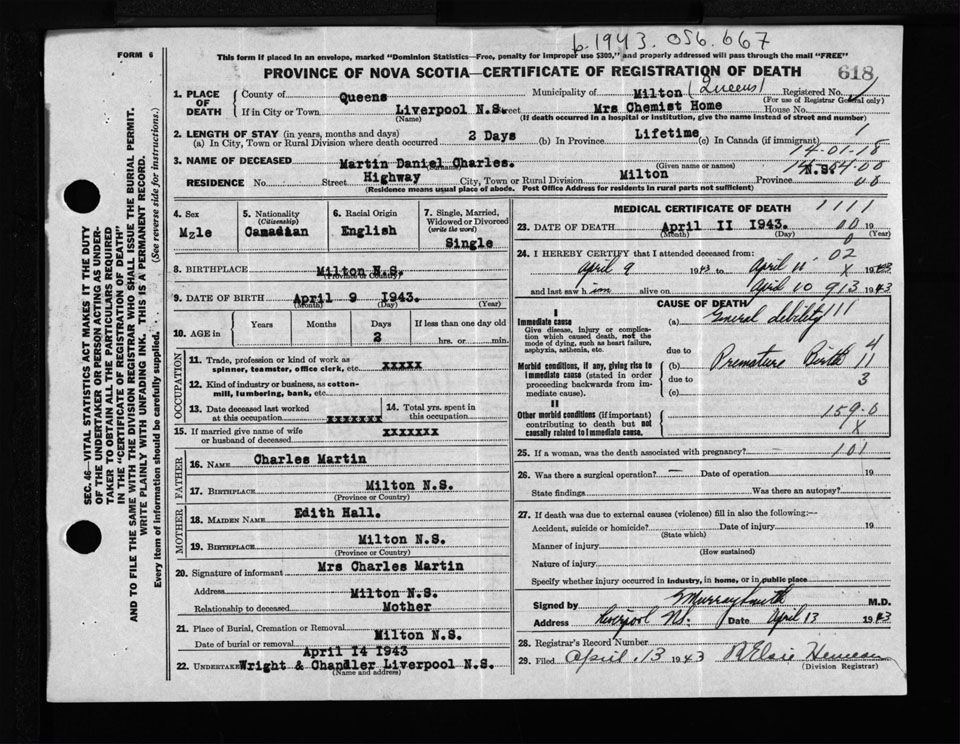 b.1943.056.667
FORM 6
This form if placed in an envelope, marked "Dominion Statistics—Free, penalty for improper use $300," and properly addressed will pass through the mail "FREE"
PROVINCE OF NOVA SCOTIA—CERTIFICATE OF REGISTRATION OF DEATH
618
SEC. 46—VITAL STATISTICS ACT MAKES IT THE DUTY
OF THE UNDERTAKER OR PERSON ACTING AS UNDER-
TAKER TO OBTAIN ALL THE PARTICULARS REQUIRED
IN THE "CERTIFICATE OF REGISTRATION OF DEATH"
AND TO FILE THE SAME WITH THE DIVISION REGISTRAR WHO SHALL ISSUE THE BURIAL PERMIT.
WRITE PLAINLY WITH UNFADING INK. THIS IS A PERMANENT RECORD.
Every item of information should be carefully supplied. (See reverse side for instructions.)
1. PLACE OF DEATH
County of Queens Municipality of Milton (Queens) Registered No.
(For use of Registrar General only)
If in City or Town Liverpool N.S. Street Mrs Chemist Home House No.
(Name) (If death occurred in a hospital or institution, give the name instead of street and number)
2. LENGTH OF STAY (in years, months and days)
(a) In City, Town or Rural Division where death occurred 2 Days (b) In Province Lifetime (c) In Canada (if immigrant) 1
14-01-18
3. NAME OF DECEASED Martin Daniel Charles.
(Surname) (Given name or names)
RESIDENCE No. Street Highway City, Town or Rural Division Milton Province N.S.
(Residence means usual place of abode. Post Office Address for residents in rural parts not sufficient)
4. Sex
Mzle
5. Nationality
(Citizenship)
Canadian
6. Racial Origin
English
7. Single, Married, Widowed or Divorced
(write the word)
Single
8. BIRTHPLACE Milton N.S.
(Province or Country)
9. DATE OF BIRTH April 9 1943.
(Month) (Day) (Year)
10. AGE in
Years Months Days If less than one day old
2 hrs. or min.
OCCUPATION
11. Trade, profession or kind of work as
spinner, teamster, office clerk, etc. XXXXX
12. Kind of industry or business, as cotton-
mill, lumbering, bank, etc.
13. Date deceased last worked
at this occupation XXXXXXX
14. Total yrs. spent in
this occupation
15. If married give name of wife
or husband of deceased XXXXXXX
FATHER
16. NAME Charles Martin
17. BIRTHPLACE Milton N.S.
(Province or Country)
MOTHER
18. MAIDEN NAME Edith Hall.
19. BIRTHPLACE Milton N.S.
(Province or Country)
20. Signature of informant Mrs Charles Martin
Address Milton N.S.
Relationship to deceased Mother
21. Place of Burial, Cremation or Removal Milton N.S.
Date of burial or removal April 14 1943
22. UNDERTAKER Wright & Chandler Liverpool N.S.
(Name and address)
MEDICAL CERTIFICATE OF DEATH 1111
23. DATE OF DEATH April II 1943. 00 19
(Month) (Day) (Year)
24. I HEREBY CERTIFY that I attended deceased from: 02
April 9 1943 to April 11 X 1943
and last saw him alive on April 10 913 1943
CAUSE OF DEATH
I
Immediate cause
Give disease, injury or complica-
tion which caused death, not the
mode of dying, such as heart failure,
asphyxia, asthenia, etc.
(a) General debility 111
due to 4
Morbid conditions, if any, giving rise to
immediate cause (stated in order
proceeding backwards from im-
mediate cause).
(b) Premature Birth 11
due to 3
(c)
II
Other morbid conditions (if important)
contributing to death but not
causally related to immediate cause.
159-0
X
25. If a woman, was the death associated with pregnancy? 101
26. Was there a surgical operation? — Date of operation 19
State findings Was there an autopsy?
27. If death was due to external causes (violence) fill in also the following:—
Accident, suicide or homicide? Date of injury 19
(State which)
Manner of injury
(How sustained)
Nature of injury
Specify whether injury occurred in industry, in home, or in public place
Signed by M.D.
Address Liverpool N.S. Date April 13 1943
28. Registrar's Record Number
29. Filed April 13 1943
(Division Registrar)